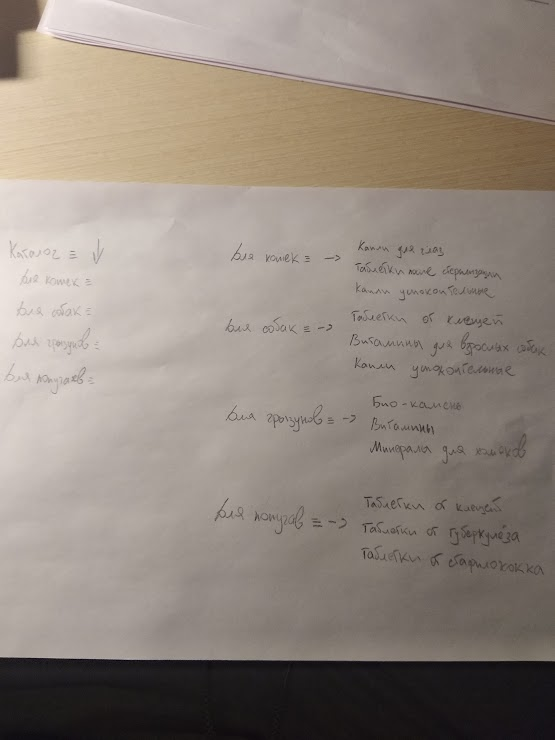 Каталог ≡ ↓
Для кошек ≡
Для собак ≡
Для грызунов ≡
Для попугаев ≡
Для кошек ≡ →
Капли для глаз
Таблетки после стерилизации
Капли успокоительные
Для собак ≡ →
Таблетки от клещей
Витамины для взрослых собак
Капли успокоительные
Для грызунов ≡ →
Био-камень
Витамины
Минералы для хомяков
Для попугав ≡ →
Таблетки от клещей
Таблетки от туберкулёза
Таблетки от стафилококка